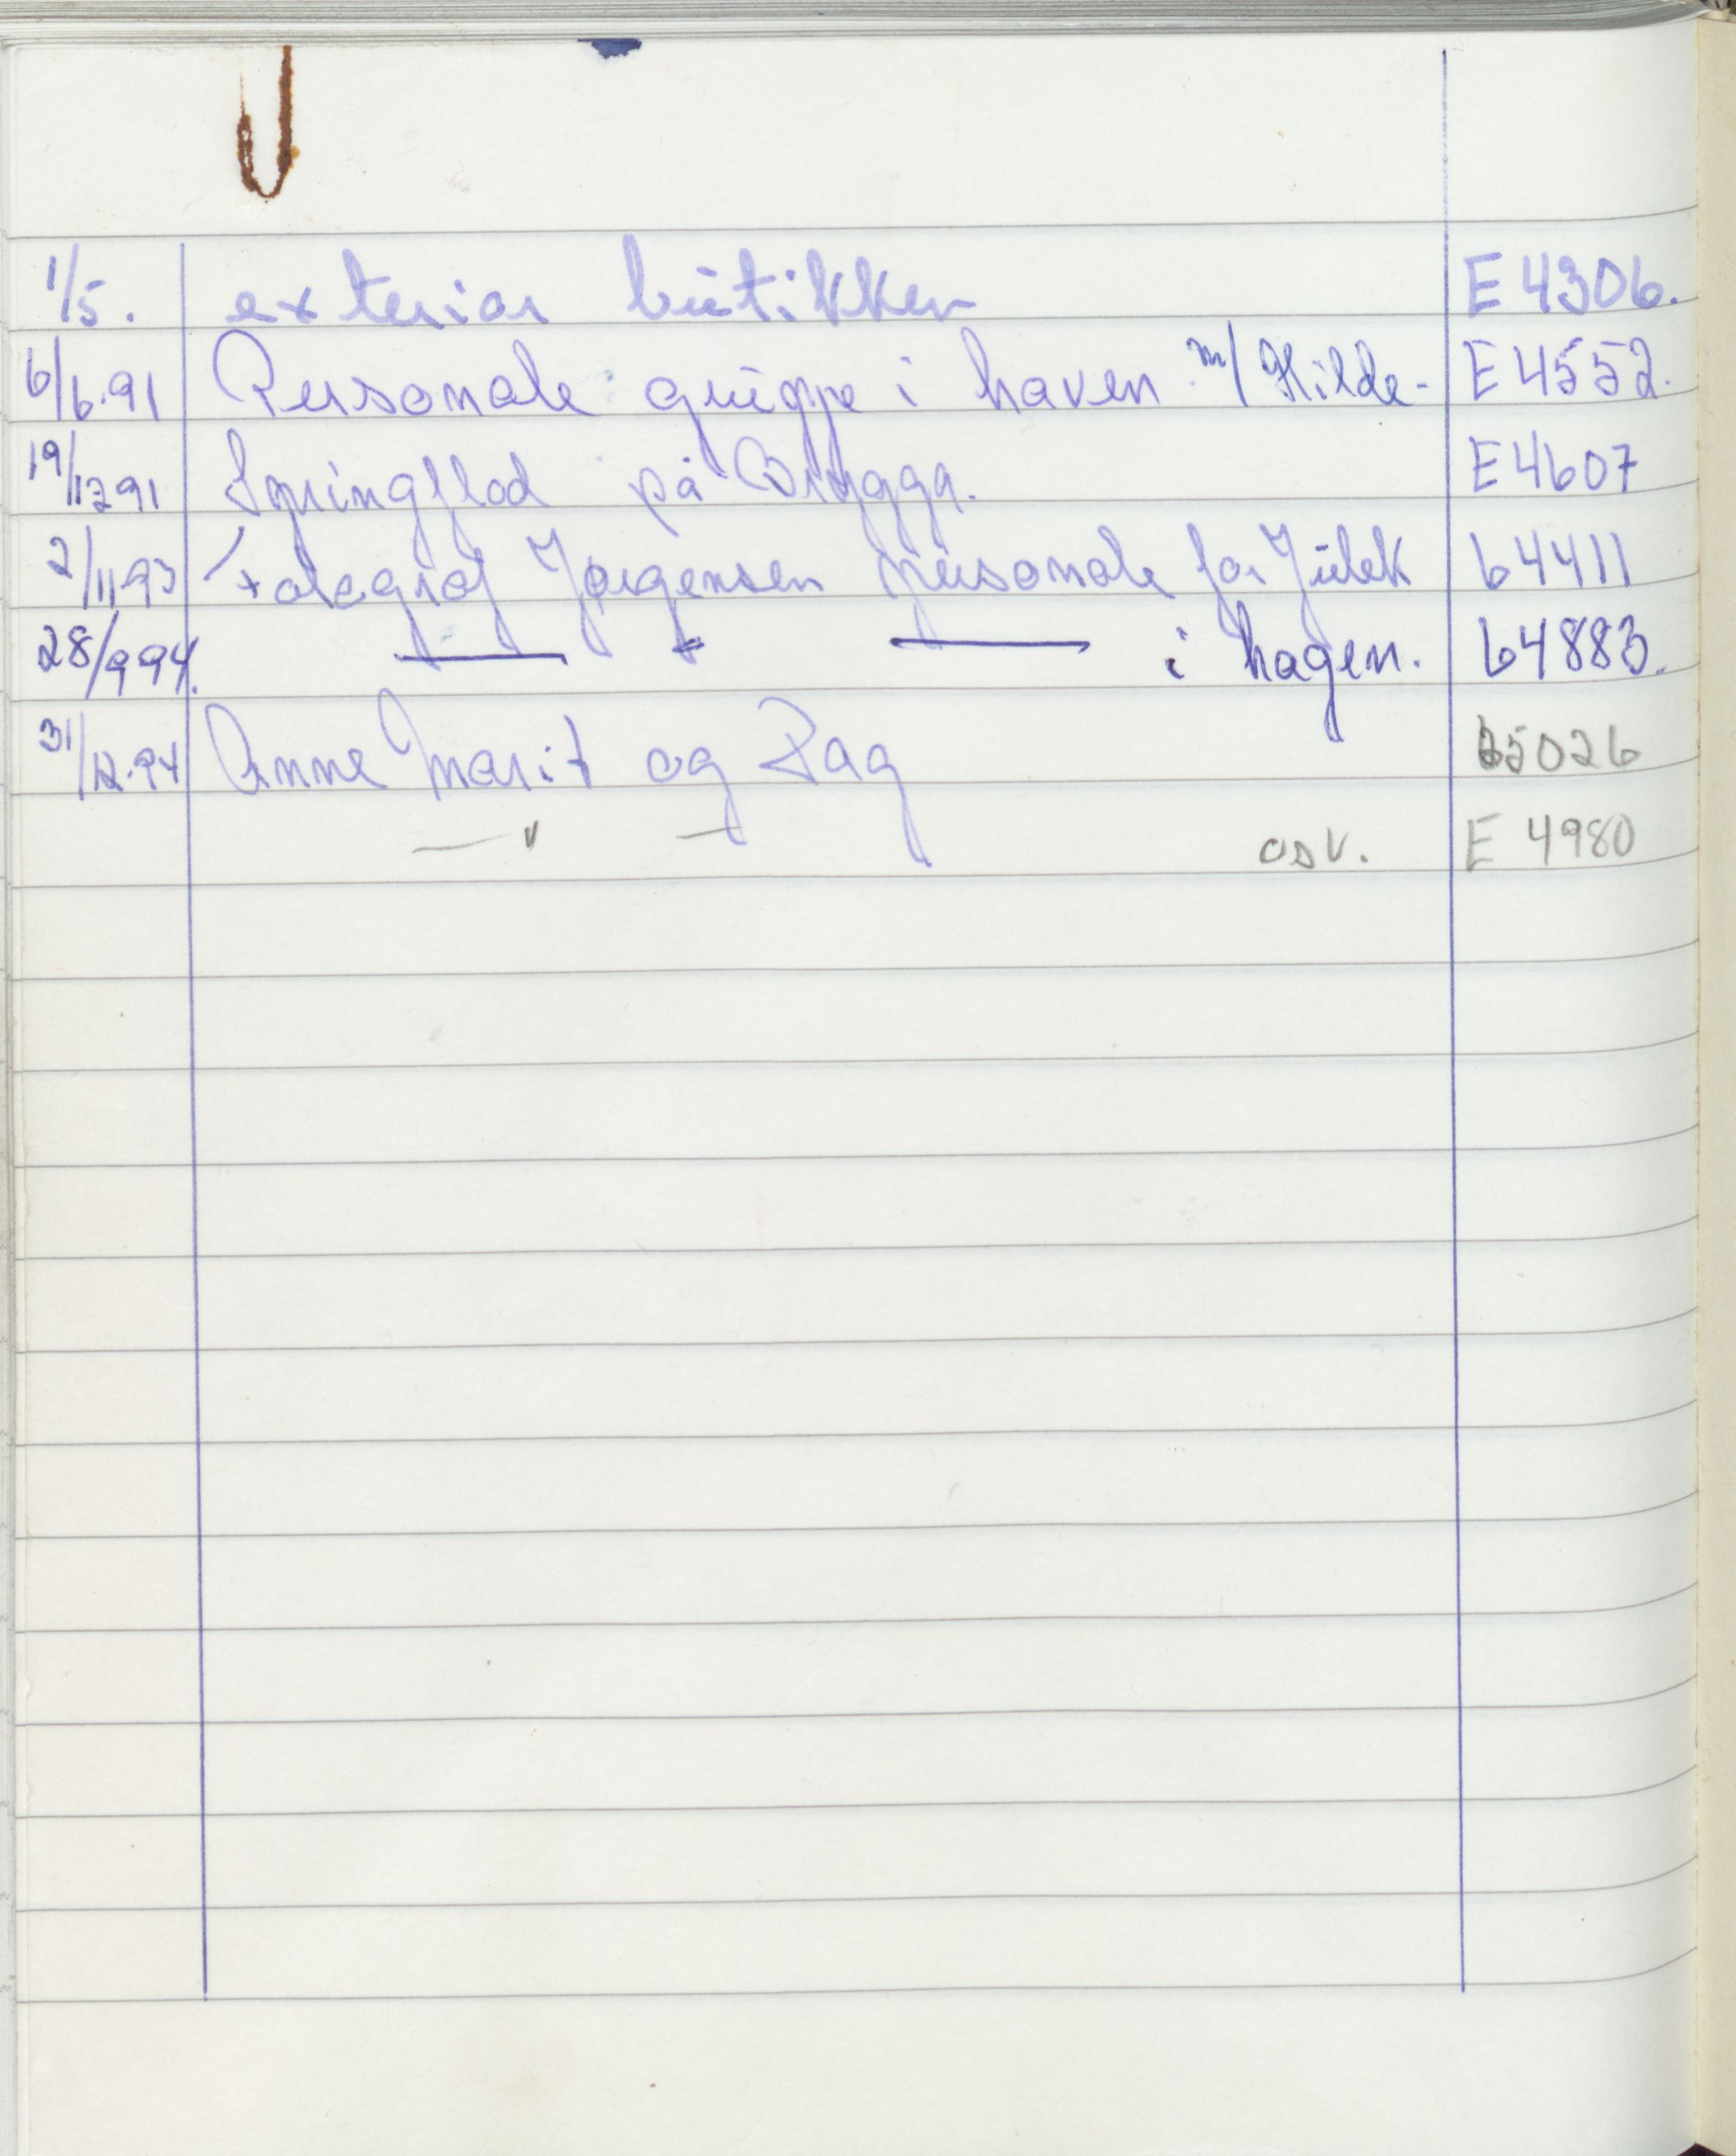 1/5. exteriør butikken E 4306.
6/6.91 Personale gruppe i haven m/ Hilde - E 4552.
19/12 91 Springflod på Brygga. E 4607
2/11 93 Fotograf Jørgensen personale for Julek 64411
28/9 94. — " — i hagen. 64883.
31/12.94 Anne Marit og Dag 65026
— " — osv. E 4980